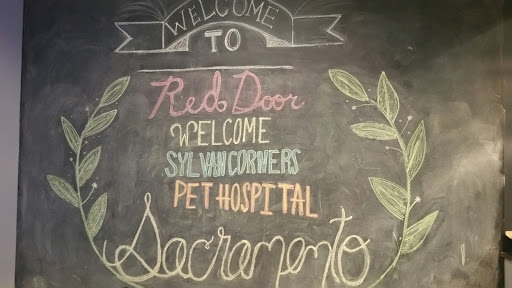 WELCOME
TO
Red Door
WELCOME
SYLVAN CORNERS
PET HOSPITAL
Sacramento